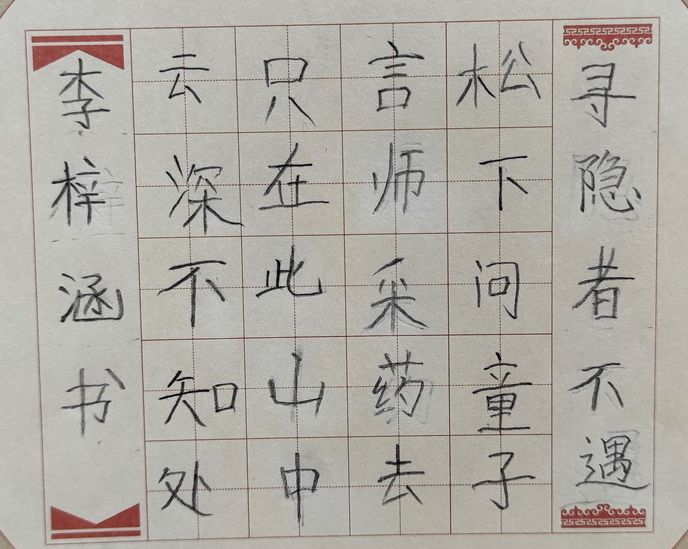 寻隐者不遇
松下问童子
言师采药去
只在此山中
云深不知处
李梓涵书